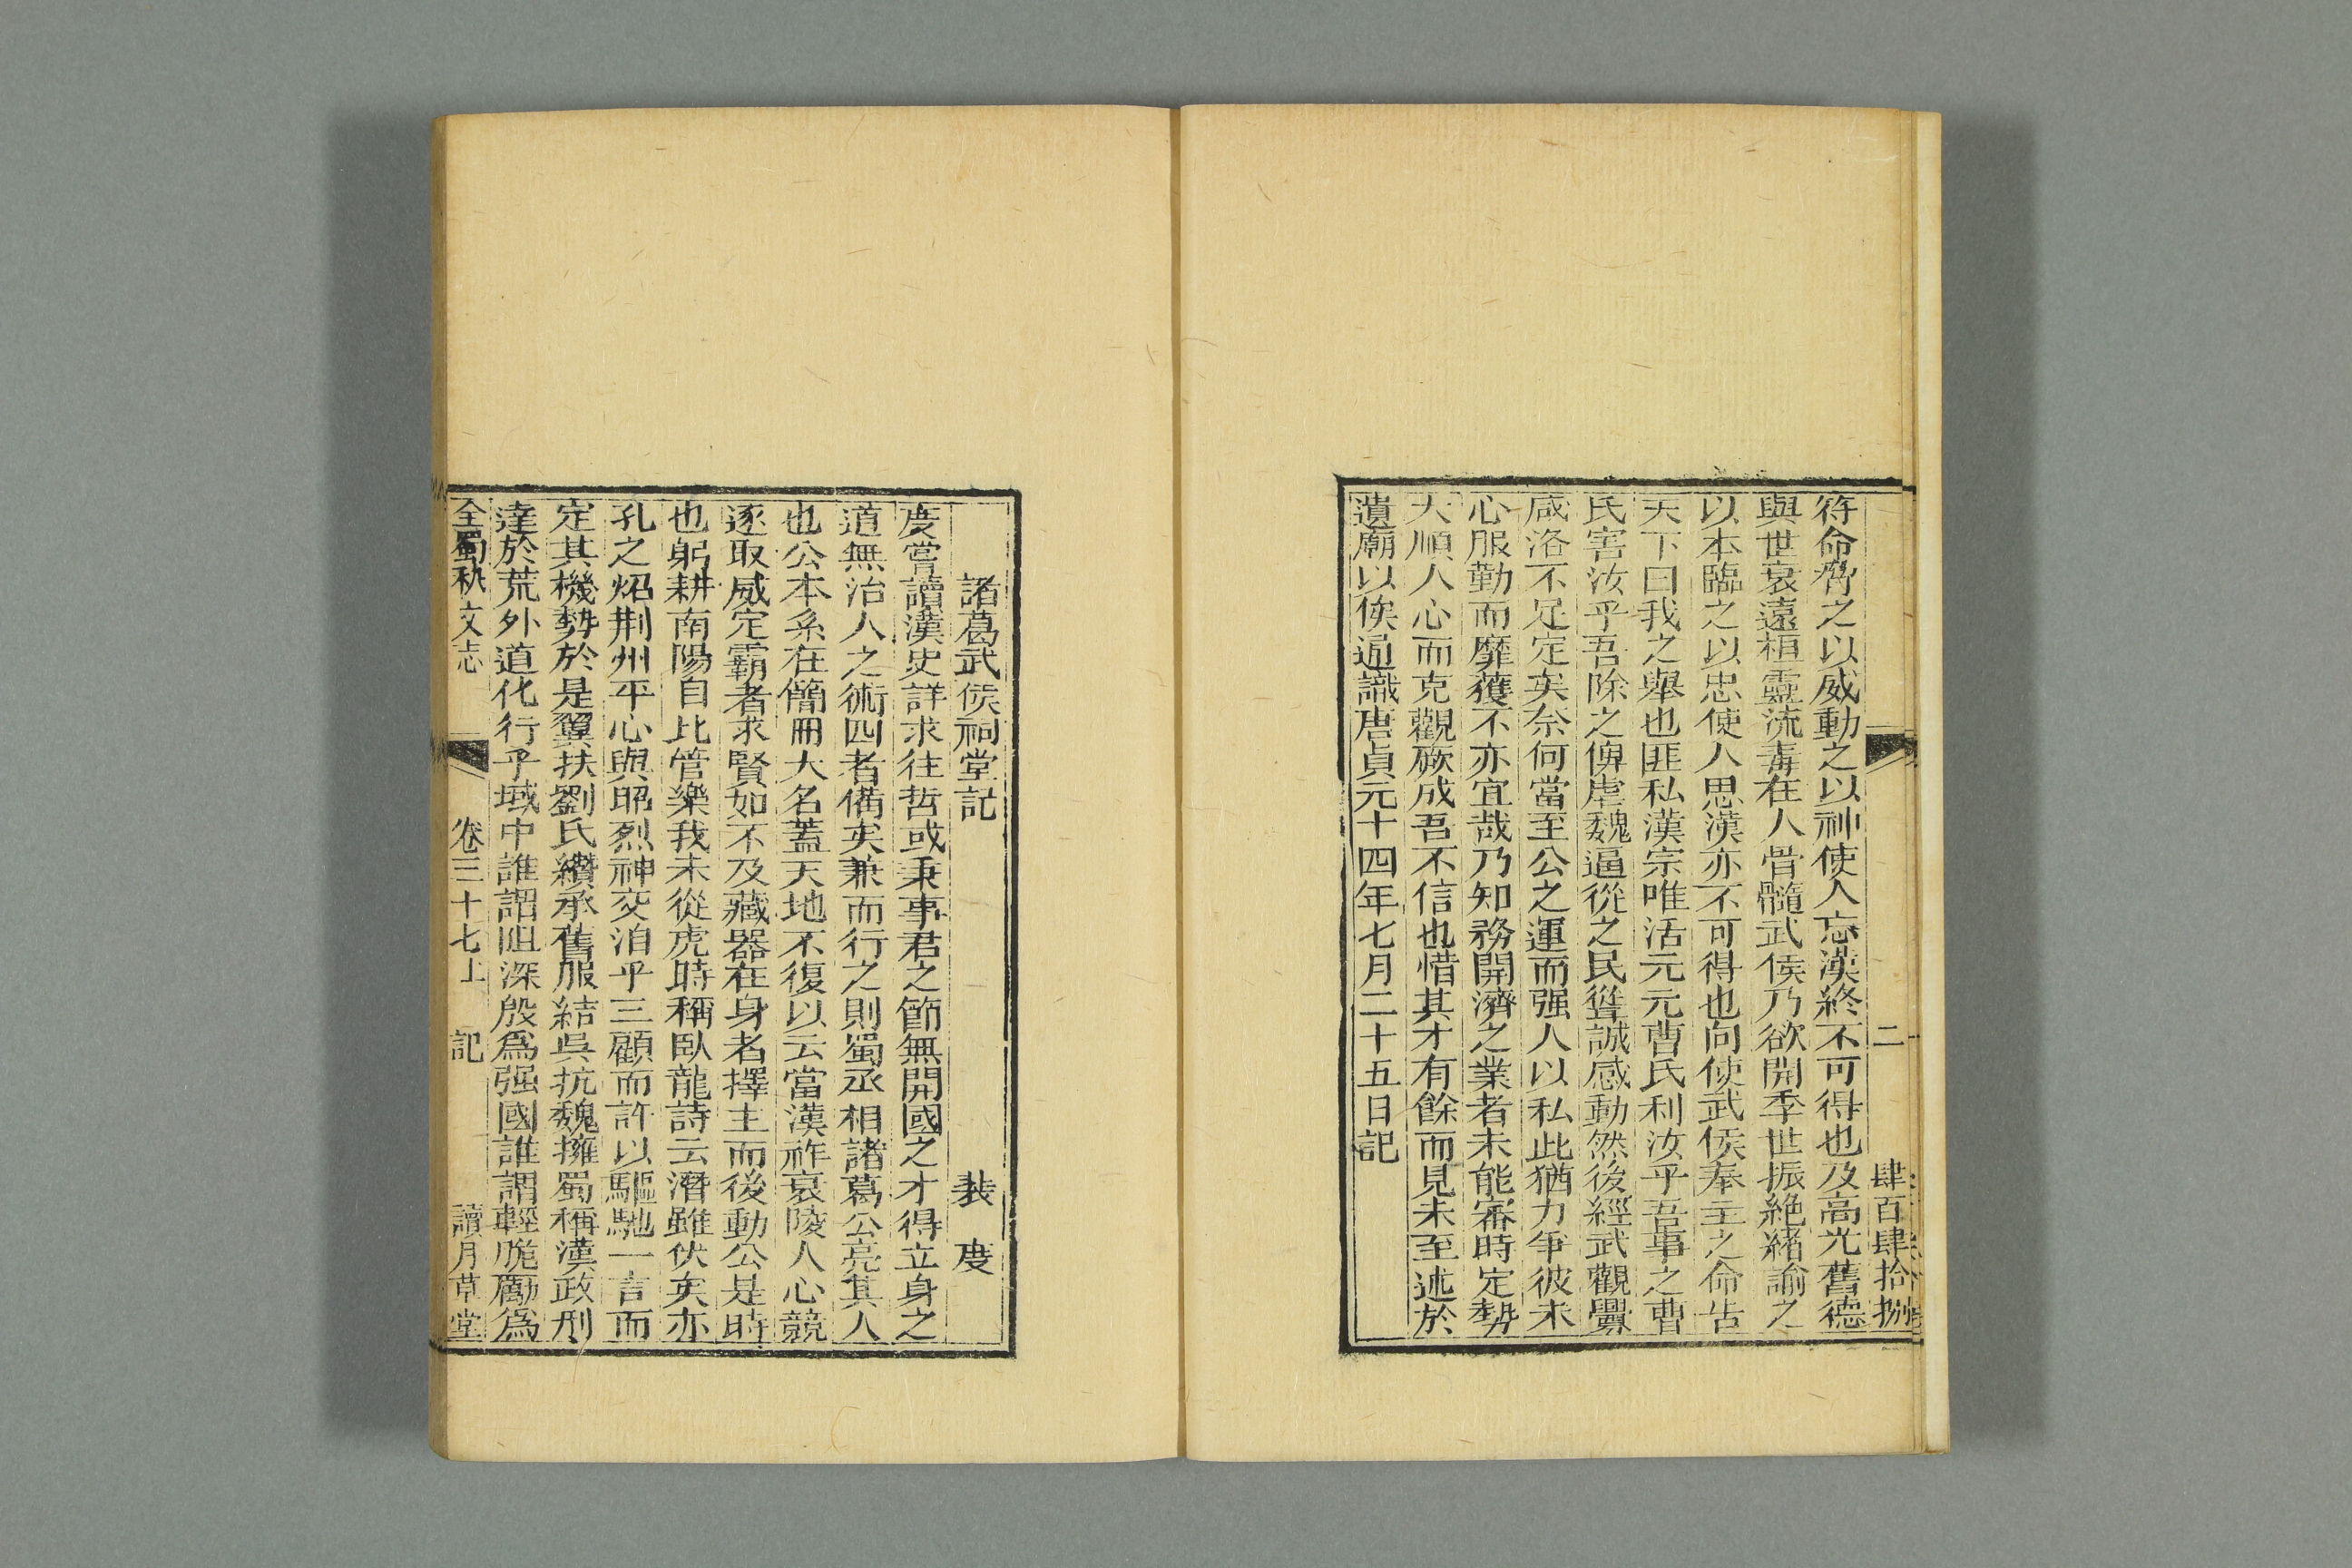 二 肆百肆拾捌
符命脅之以威動之以神使人忘漢終不可得也及高光舊德
與世衰遠桓靈流毒在人骨髓武侯乃欲開季世振絶緒諭之
以本臨之以忠使人思漢亦不可得也向使武侯奉主之命告
天下曰我之舉也匪私漢宗唯活元元曹氏利汝乎吾事之曹
氏害汝乎吾除之俾虐魏逼從之民聳誠感動然後經武觀釁
咸洛不足定矣奈何當至公之運而强人以私此猶力爭彼未
心服勤而靡獲不亦宜哉乃知務開濟之業者未能審時定勢
大順人心而克觀厥成吾不信也惜其才有餘而見未至述於
遺廟以俟通識唐貞元十四年七月二十五日記
諸葛武侯祠堂記 裴度
度嘗讀漢史詳求往哲或秉事君之節無開國之才得立身之
道無治人之術四者備矣兼而行之則蜀丞相諸葛公亮其人
也公本系在簡冊大名蓋天地不復以云當漢祚衰陵人心競
逐取威定霸者求賢如不及藏器在身者擇主而後動公是時
也躬耕南陽自比管樂我未從虎時稱臥龍詩云潛雖伏矣亦
孔之炤荆州平心與昭烈神交洎乎三顧而許以驅馳一言而
定其機勢於是翼扶劉氏纘承舊服結吳抗魏擁蜀稱漢政刑
達於荒外道化行乎域中誰謂阻深殷爲强國誰謂輕脆勵爲
全蜀秇文志 卷三十七上 記 讀月草堂